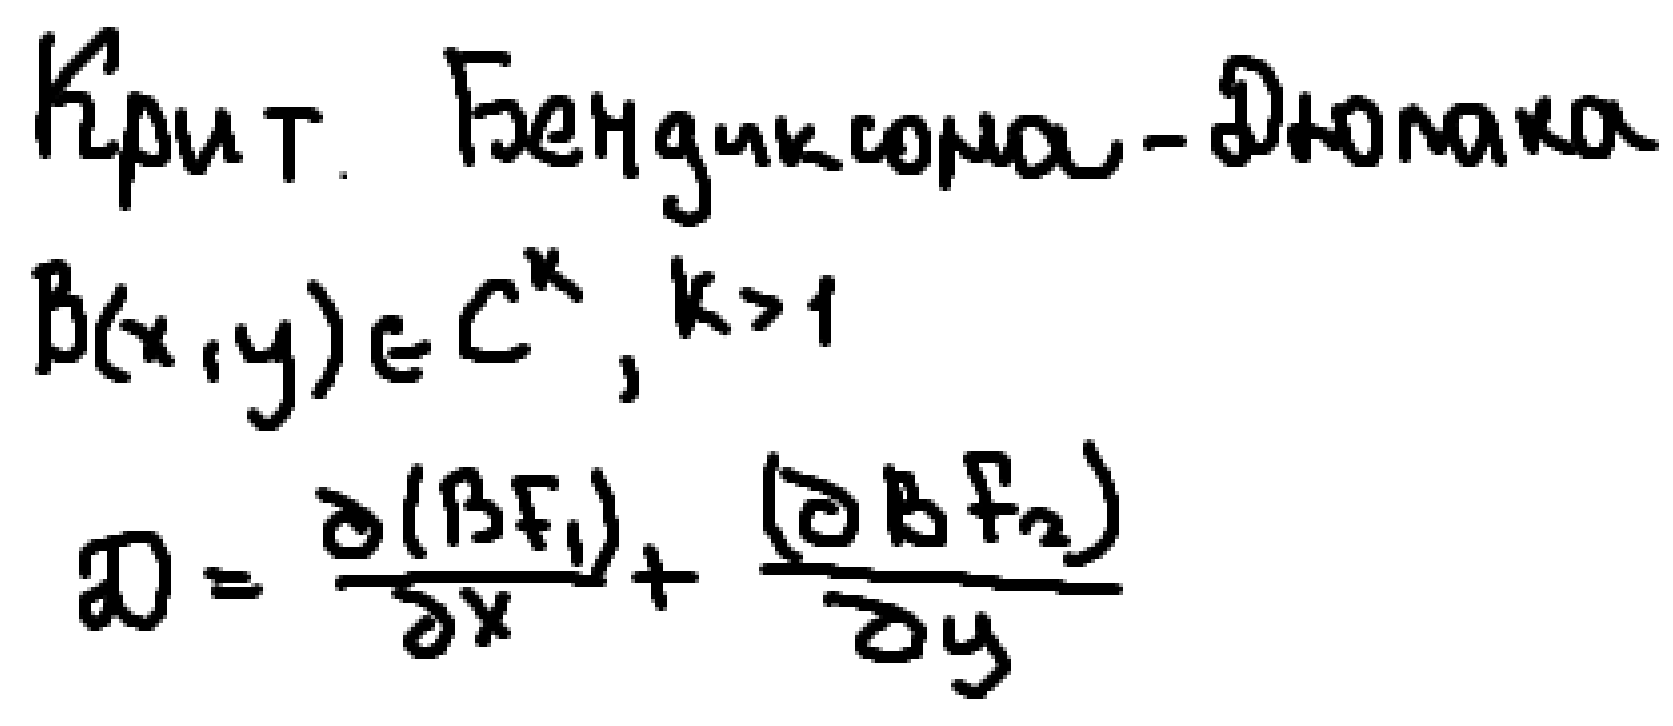 Крит. Бендиксона - Дюлака
B(x,y) ∈ C^k, k > 1
D = ∂(BF₁)/∂x + (∂BF₂)/∂y